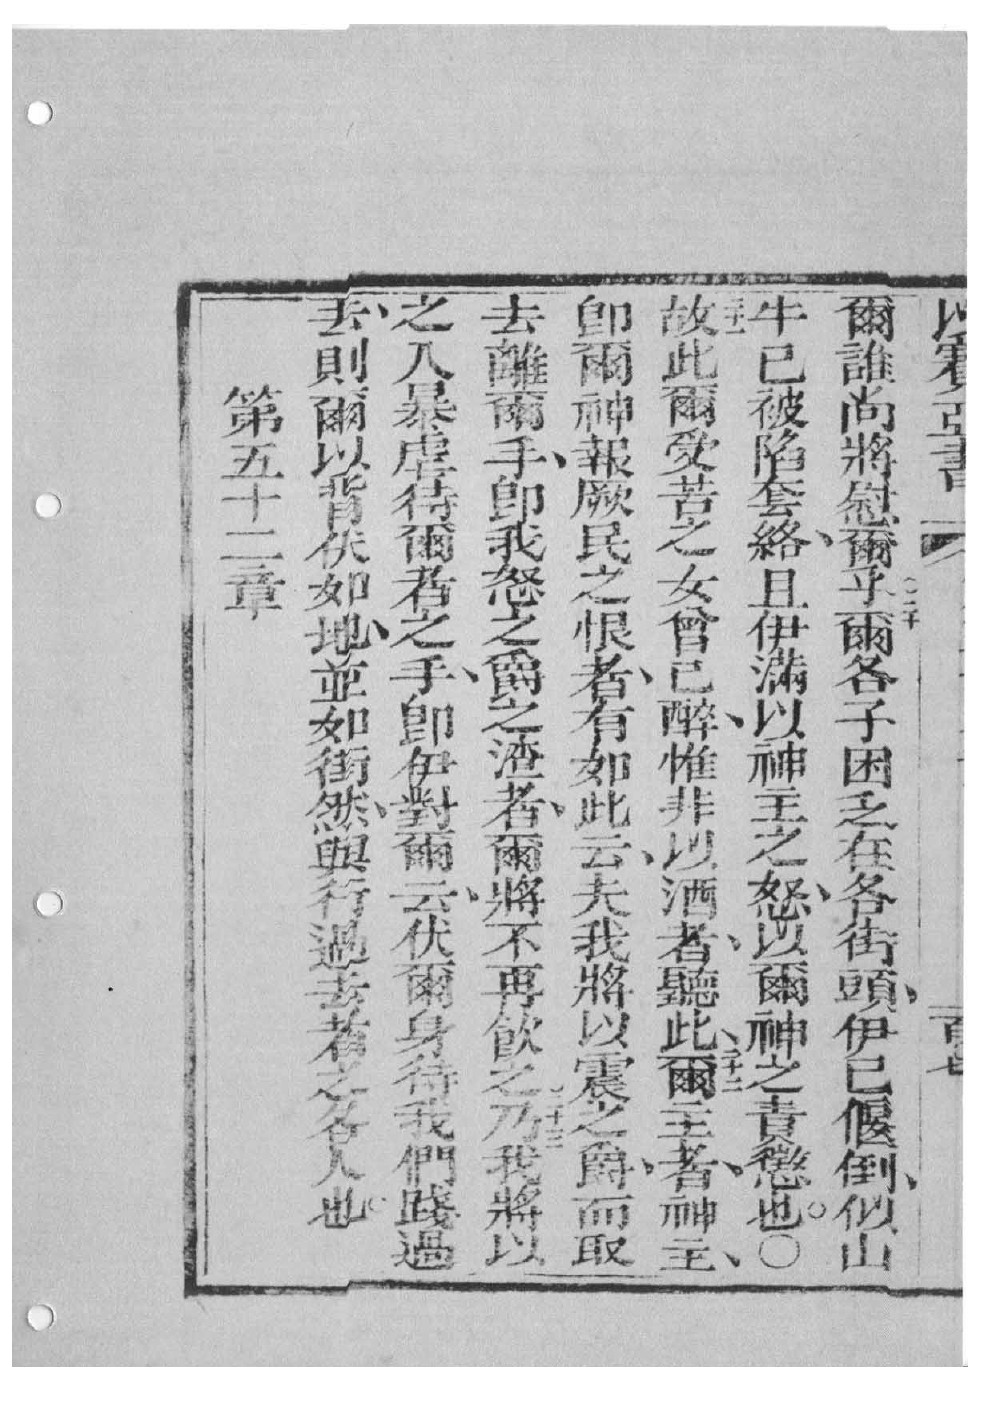 以賽亞書
爾誰尚將慰爾乎二十爾各子困乏在各街頭、伊已偃倒、似山
牛已被陷套絡、且伊滿以神主之怒、以爾神之責懲也。〇
二十一故此爾受苦之女曾已醉、惟非以酒者、聽此、二十二爾主者、神主、
即爾神報厥民之恨者、有如此云、夫我將以震之爵、而取
去離爾手、即我怒之爵之渣者、爾將不再飲之。二十三乃我將以
之入暴虐待爾者之手、即伊對爾云、伏爾身待我們踐過
去、則爾以背伏如地、並如街然、與行過去者之各人也。
第五十二章